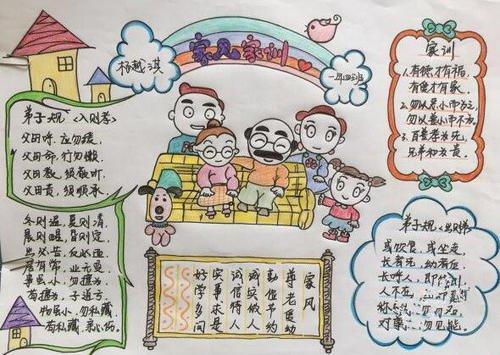 家风家训
杨越淇
一年四班
家训
1.有德才有福,
有德才有家。
2.勿以善小而不为,
勿以恶小而为之。
3.百善孝为先,
兄弟和为贵。
弟子规·《入则孝》
父母呼,应勿缓,
父母命,行勿懒,
父母教,须敬听,
父母责,须顺承。
冬则温,夏则凊,
晨则省,昏则定,
出必告,反必面,
居有常,业无变,
事虽小,勿擅为,
苟擅为,子道亏,
物虽小,勿私藏,
苟私藏,亲心伤。
家风
尊老爱幼
勤俭节约
诚实做人
诚信待人
实事求是
好学多问
弟子规·《出则悌》
或饮食,或坐走,
长者先,幼者后,
长呼人,即代叫,
人不在,
称尊长,勿呼名,
对尊长,勿见能。